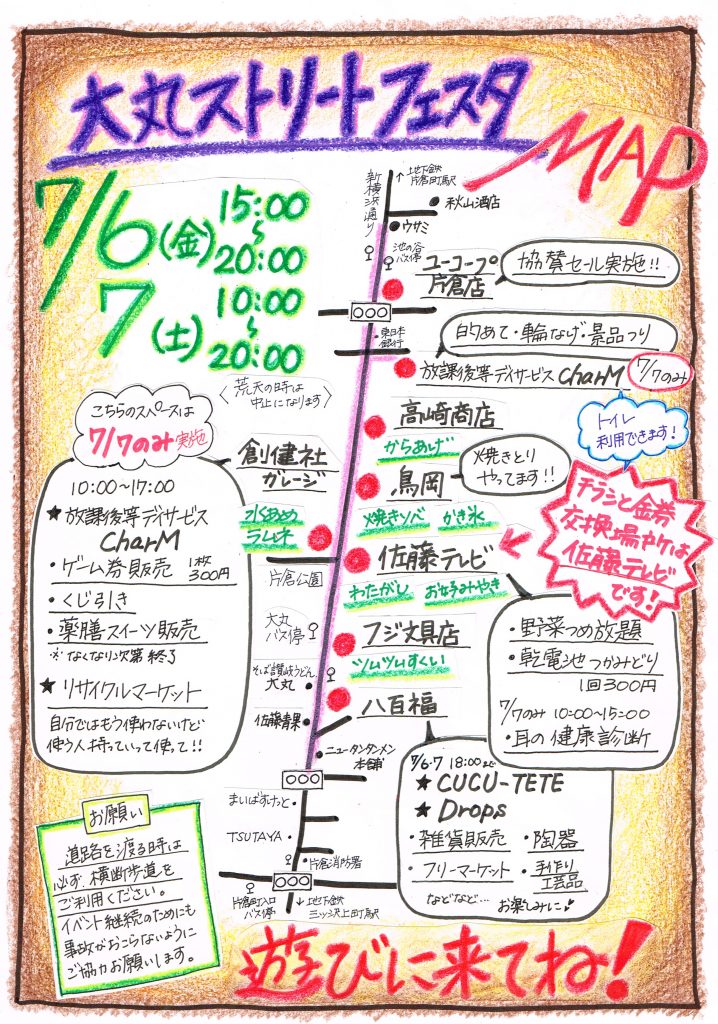 大丸ストリートフェスタ
MAP
7/6(金)
15:00
〜
20:00
7(土)
10:00
〜
20:00
〈荒天の時は
中止になります〉
新横浜通り
↑地下鉄
片倉町駅
秋山酒店
ウサミ
池の谷
バス停
ユーコープ
片倉店
協賛セール実施!!
東日本
銀行
的あて・輪なげ・景品つり
放課後等デイサービス CharM
7/7のみ
トイレ
利用できます!
高崎商店
からあげ
鳥岡
焼きとり
やってます!!
焼きソバ かき氷
チラシと金券
交換場所は
佐藤テレビ
です!
佐藤テレビ
わたがし お好みやき
・野菜つめ放題
・乾電池つかみどり
1回300円
7/7のみ 10:00〜15:00
・耳の健康診断
こちらのスペースは
7/7のみ実施
創健社
ガレージ
水あめ
ラムネ
10:00〜17:00
★放課後等デイサービス
CharM
・ゲーム券販売 1枚
300円
・くじ引き
・薬膳スイーツ販売
※なくなり次第終了
★リサイクルマーケット
自分ではもう使わないけど
使う人持っていって使って!!
片倉公園
大丸
バス停
フジ文具店
ツムツムすくい
そば讃岐うどん
大丸
八百福
佐藤青果
ニュータンタンメン
本舗
7/6・7 18:00まで
★CUCU-TETE
★Drops
・雑貨販売 ・陶器
・フリーマーケット ・手作り
工芸品
などなど… お楽しみに♪
まいばすけっと
TSUTAYA
片倉消防署
片倉町入口
バス停
↓地下鉄
三ッ沢上町駅
お願い
道路を渡る時は
必ず、横断歩道を
ご利用ください。
イベント継続のためにも
事故がおこらないように
ご協力お願いします。
遊びに来てね!